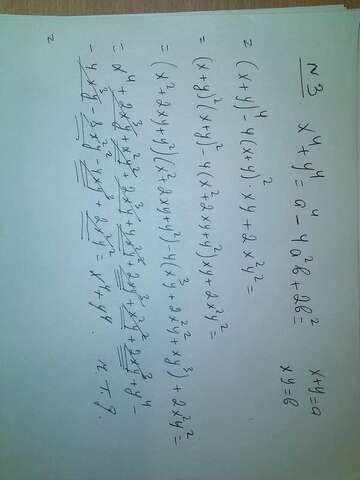 №3 x⁴+y⁴ = a⁴ - 4a²b + 2b² = x+y=a
xy=b
= (x+y)⁴ - 4(x+y)²·xy + 2x²y² =
= (x+y)²(x+y)² - 4(x²+2xy+y²)xy + 2x²y² =
= (x²+2xy+y²)(x²+2xy+y²) - 4(x³y+2x²y²+xy³) + 2x²y² =
= x⁴+2x³y+x²y²+2x³y+4x²y²+2xy³+x²y²+2xy³+y⁴ -
- 4x³y - 8x²y² - 4xy³ + 2x²y² = x⁴+y⁴. ч.т.д.